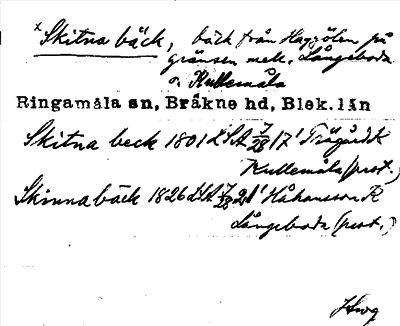 x Skitna bäck, bäck från Haggölen på
gränsen mell. Långeboda
o. Kullemåla
Ringamåla sn, Bräkne hd, Blek. län
Skitna beck 1801 LSA 7/28 17'
Kullemåla (prot.)
Skinnabäck 1826 LSA 7/28 21' Håkansson K
Långeboda (prot.)